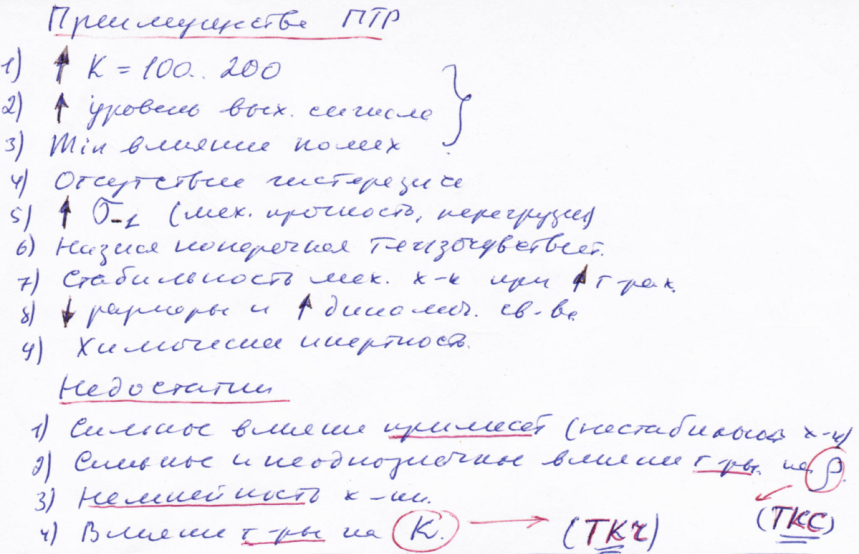 Преимущества ПТР
1) ↑ K = 100.. 200
2) ↑ уровень вых. сигнала
3) Min влияние помех
4) Отсутствие гистерезиса
5) ↑ σ-1 (мех. прочность, перегрузка)
6) Низкая поперечная тензочувствит.
7) Стабильность мех. х-к при ↑ т-рах.
8) ↓ размеры и ↑ динамич. св-ва
9) Химическая инертность.
Недостатки
1) Сильное влияние примесей (нестабильность х-к)
2) Сильное и неоднозначное влияние т-ры на ρ.
3) Нелинейность х-ки.
(ТКС)
4) Влияние т-ры на K. → (ТКЧ)